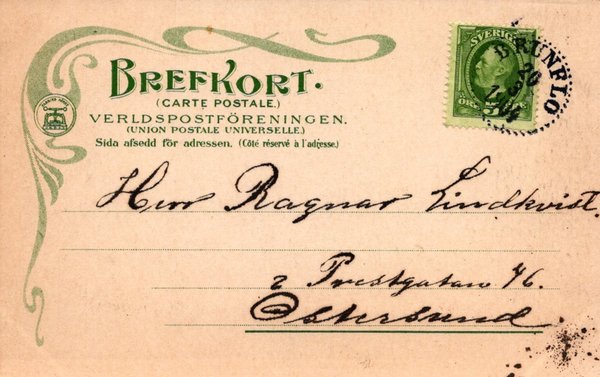 BREFKORT.
(CARTE POSTALE.)
VERLDSPOSTFÖRENINGEN.
(UNION POSTALE UNIVERSELLE.)
Sida afsedd för adressen. (Côté réservé à l'adresse.)
SVERIGE
ÖRE
BRUNFLO
20
Herr Ragnar Lindkvist.
Prestgatan 46.
Östersund